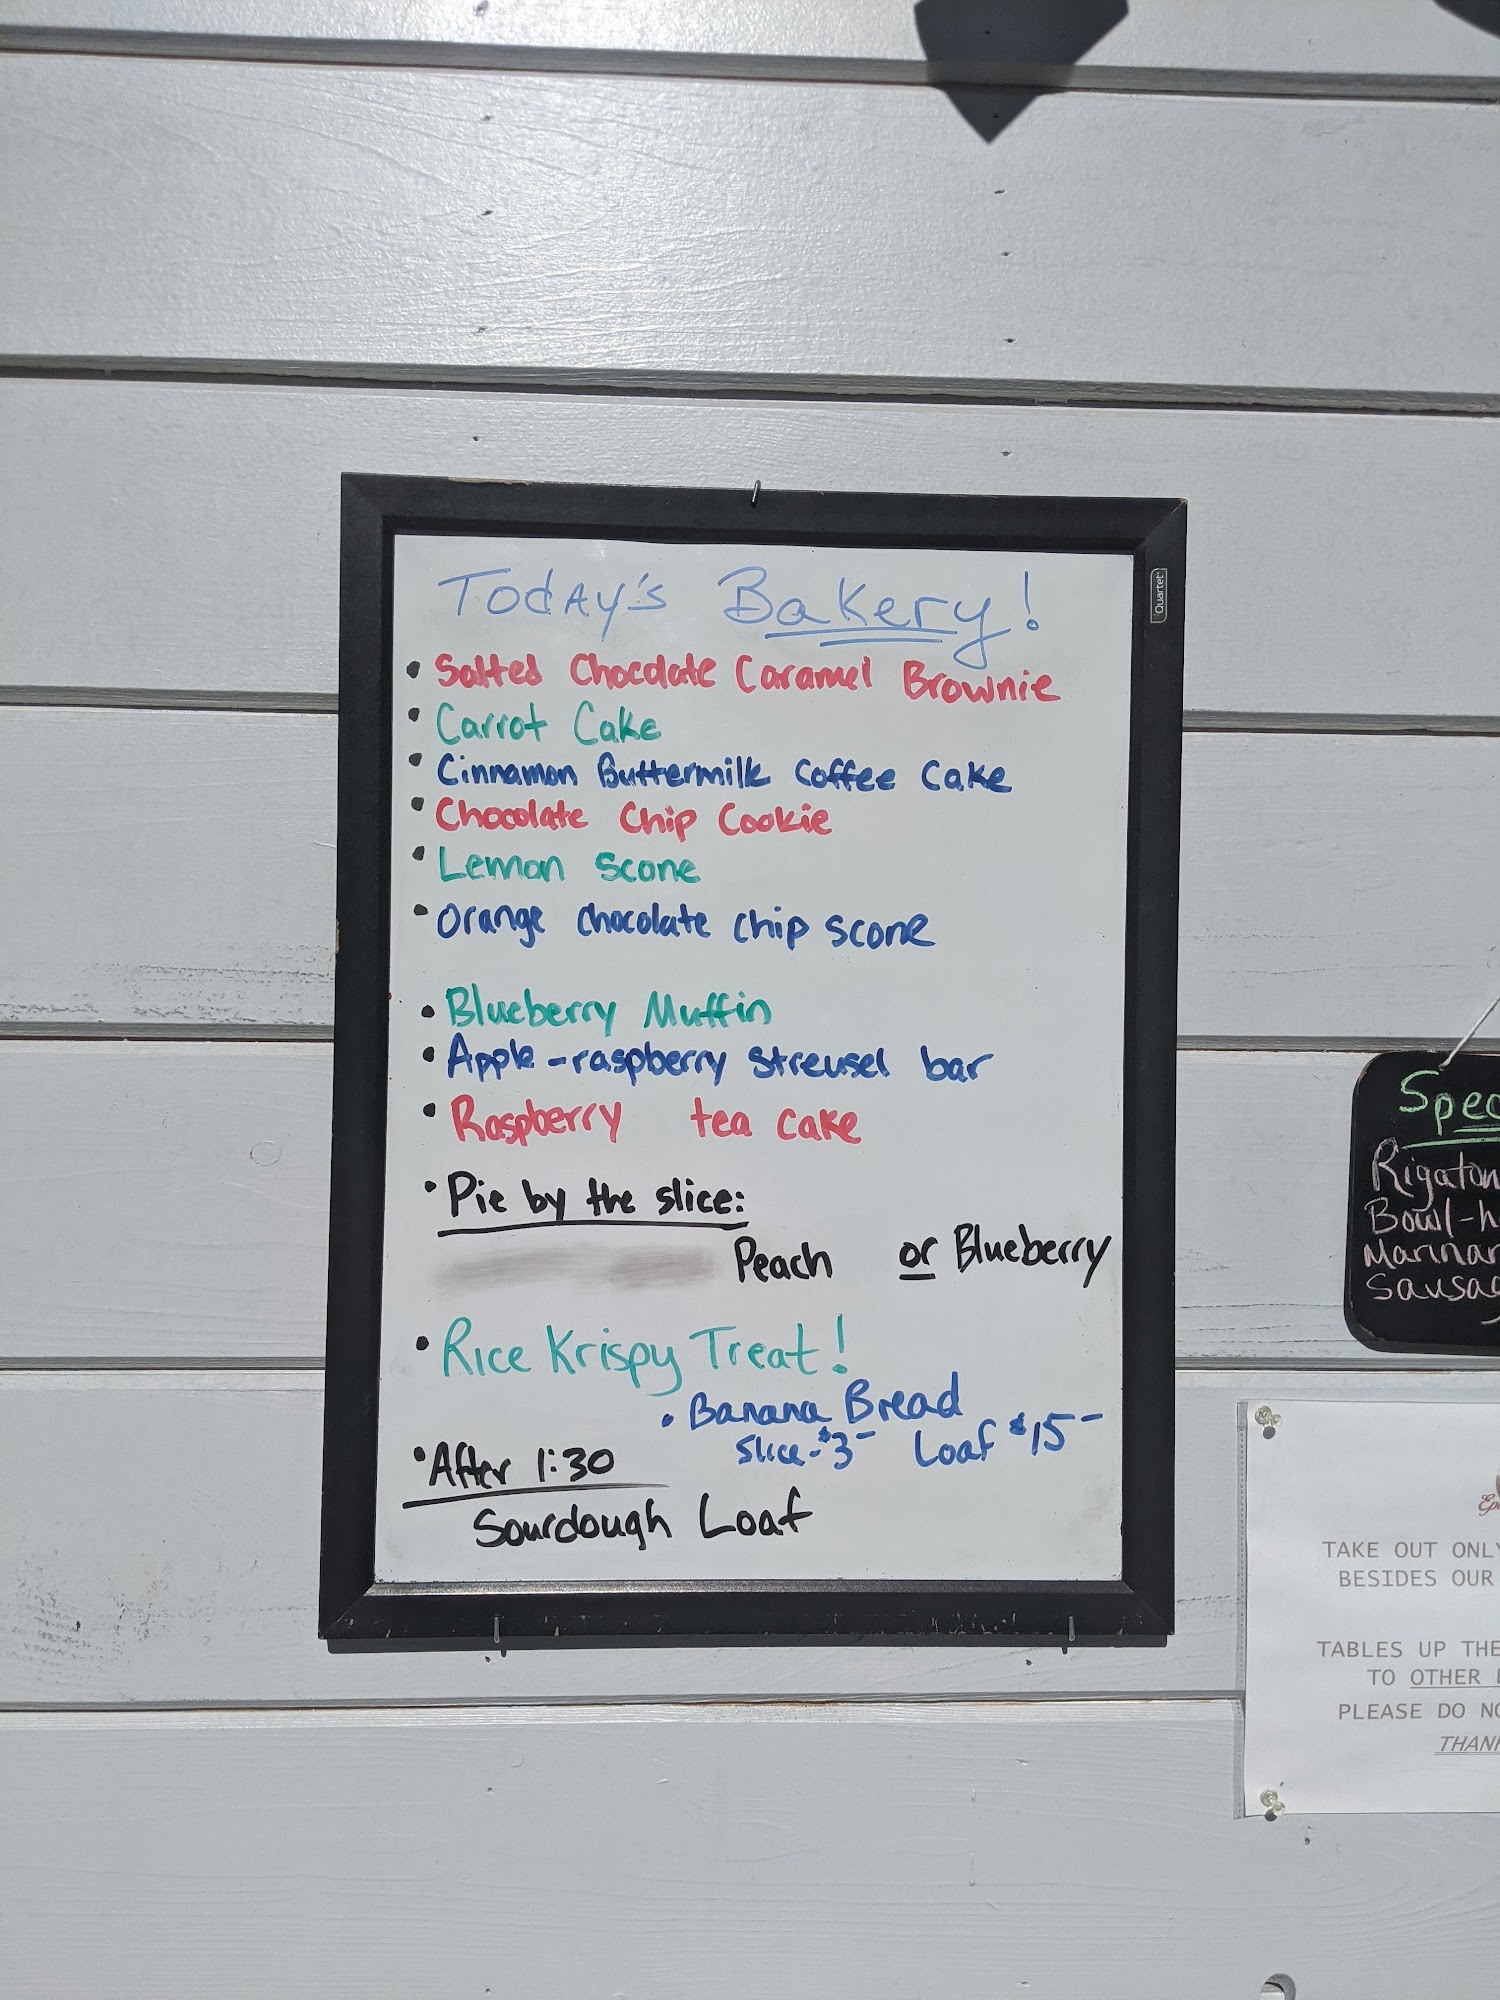 Today's Bakery!
Quartet
• Salted Chocolate Caramel Brownie
• Carrot Cake
• Cinnamon Buttermilk Coffee Cake
• Chocolate Chip Cookie
• Lemon Scone
• Orange chocolate chip scone
• Blueberry Muffin
• Apple-raspberry streusel bar
• Raspberry tea cake
• Pie by the slice:
Peach or Blueberry
• Rice Krispy Treat!
• Banana Bread
Slice-$3- Loaf $15-
• After 1:30
Sourdough Loaf
Rigaton
Bowl-h
Marinar
Sausag
TAKE OUT ONLY
BESIDES OUR
TABLES UP THE
TO OTHER
PLEASE DO NO
THAN